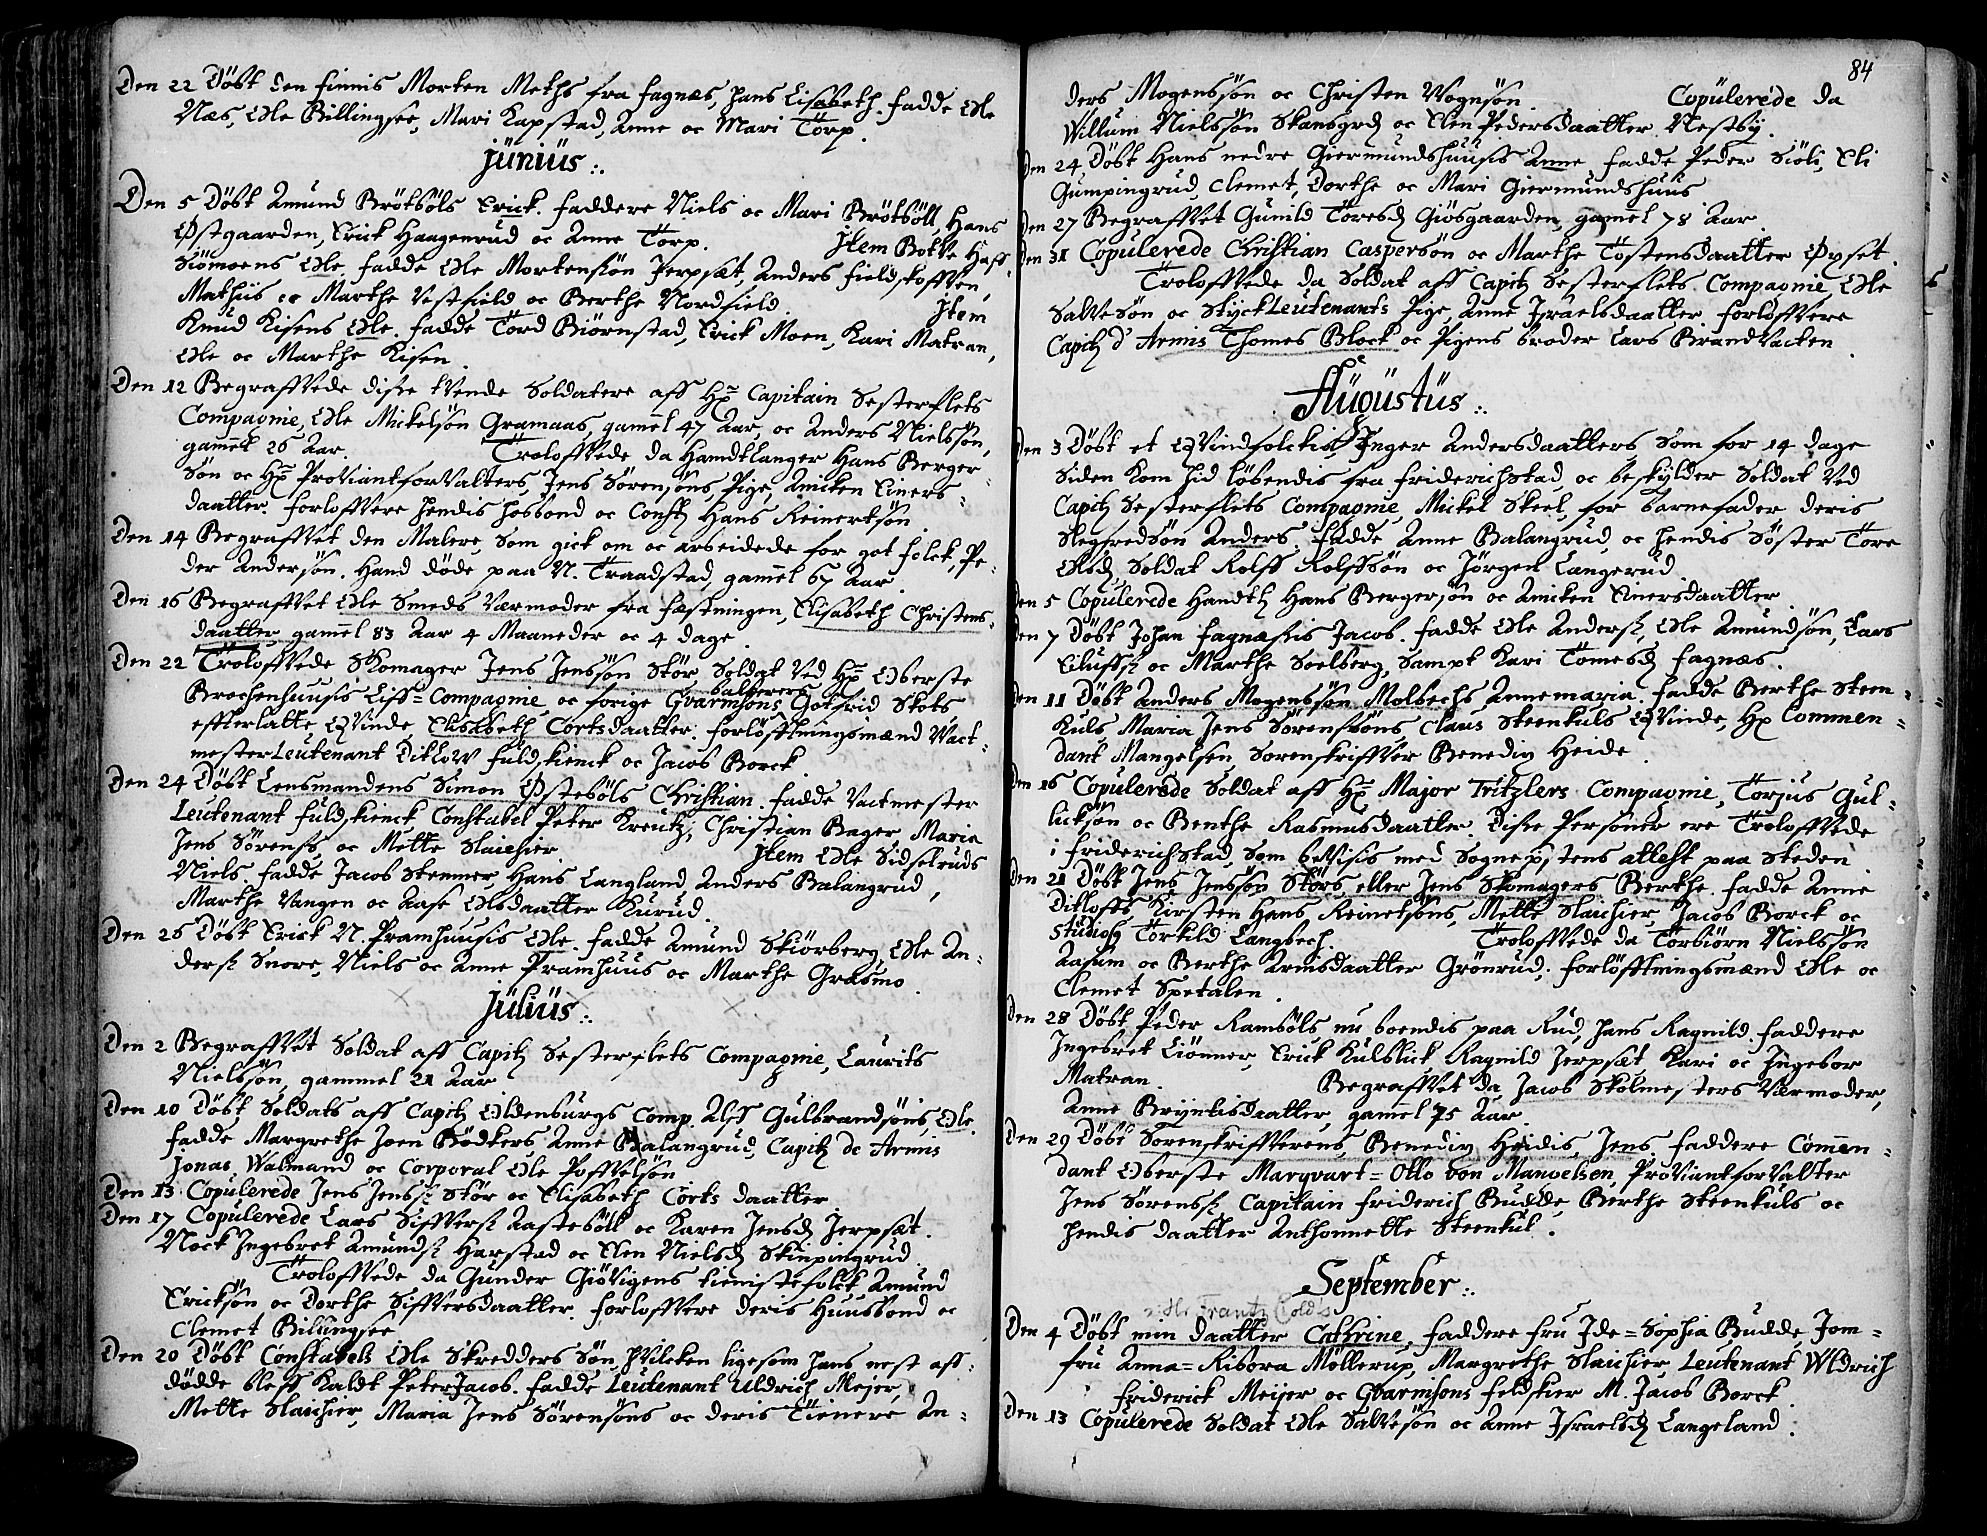 Den 22 Döbt den finnis Morten Meths fra Fagnæs, hans Lisabeth. Fadde Ole
Næs, Ole Billingsee, Mari Kapstad, Anne oc Mari Torp.
Junius.
Den 5 Döbt Amund Brötsöls Erick. Faddere Niels oc Mari Brötsöll, Hans
Östgaarden, Erick Haagenrud oc Anne Torp. Item Botte Haff-
Siömoens Ole. Fadde Ole Mortensön Jerpsæt, Anders Fieldstofften,
Mathiis oc Marthe Vestfield oc Berthe Nordfield. Item
Knud Kisens Ole. Fadde Tord Biörnstad, Erick Moen, Kari Matran,
Ole oc Marthe Kisen.
Den 12 Begraffvede disse tvende Soldatere aff Hr Capitain Sesterflets
Compagnie, Ole Mickelsön Gramaas, gamel 47 Aar, oc Anders Nielssön,
gammel 26 Aar. Troloffvede da Handtlanger Hans Berger-
Sön oc Hr Proviantforvalters, Jens Sörensöns Pige, Anicken Einers-
daatter. Forloffvere hendis hosbond oc Const Hans Reinertsön.
Den 14 Begraffvet den Malere, som gick om oc arbeidede for got folck, Pe-
der Andersön. Hand döde paa N. Traadstad, gamel 67 Aar.
Den 16 Begraffvet Ole Smeds Værmoder fra fæstningen, Elisabeth Christens-
daatter, gamel 83 Aar 4 Maaneder oc 4 dage.
Den 22 Troloffvede Skomager Jens Jenssön Stör, Soldat ved Hr Oberste
Brochenhuusis Liff-Compagnie oc forige Gvarnisons balberers Gotfrid Skots
effterlatte Qvinde, Elisabeth Cortsdaatter. Forlöfftningsmænd Vact-
mester Leutenant Ditlow Fuldskienck oc Jacob Borck.
Den 24 Döbt Lensmandens Simon Östeböls Christian. Fadde Vactmester
Leutenant Fuldskienck Constabel Peter Kreutz, Christian Bager, Maria
Jens Sörenss oc Mette Slaichier. Item Ole Sidselruds
Niels. Fadde Jacob Stemmer, Hans Langland, Anders Balangrud,
Marthe Vangen oc Aase Olsdaatter Kurud.
Den 26 Döbt Erick N. Pramhuusis Ole. Fadde Amund Skiörberg, Ole An-
ders Snore, Niels oc Anne Pramhuus oc Marthe Grasmo.
Julius.
Den 2 Begraffvet Soldat aff Capit Sesterflets Compagnie, Laurits
Nielssön, gammel 21 Aar.
Den 10 Döbt Soldats aff Capit Oldenburgs Comp. Alff Gulbrandsöns, Ole.
Fadde Margrethe Joen Bödkers Anne Balangrud, Capit de Armis
Jonas Walmand oc Corporal Ole Poffvelsön
Den 13 Copulerede Jens Jens Stör oc Elisabeth Corts daatter
Den 17 Copulerede Lars Siffvers Aasteböll oc Karen Jensd Jerpsæt.
Nock Ingebret Amunds Harstad oc Elen Nielsd Skinpingrud.
Troloffvede da Gunder Giövigens tienistefolck Amund
Ericksön oc Dorthe Siffversdaatter. Forloffvere deris Huusbond oc
Clemet Billingsee
Den 20 Döbt Constabels Ole Skredders Sön, hvilcken ligesom hans nest aff-
dödde bleff kaldt Peter Jacob. Fadde Leutenant Uldrich Mejer,
Mette Slaichier, Maria Jens Sörensöns oc deris Tienere An-
84
ders Mogenssön oc Christen Vognsön. Copulerede da
Willum Nielssön Skansgrd oc Elen Pedersdaatter Nestby.
Den 24 Döbt Hans nedre Giermundshuusis Anne. Fadde Peder Siöli, Eli
Gumpingrud, Clemet, Dorthe oc Mari Giermundshuus
Den 27 Begraffvet Gunild Toresd Giösgaarden, gamel 78 Aar.
Den 31 Copulerede Christian Caspersön oc Marthe Tostensdaatter Öxset.
Troloffvede da Soldat aff Capit Sesterflets Compagnie Ole
Salvesön oc StyckLeutenants Pige, Anne Israelsdaatter. Forloffvere
Capit d' Armis Thomes Block oc Pigens broder Lars Brandvacten.
Augustus.
Den 3 Döbt et Qvindfolckis Inger Andersdaatters Som for 14 dage
Siden kom hid löbendis fra Friderichstad, oc beskylder Soldat ved
Capit Sesterflets Compagnie, Mickel Skeel, for barnefader deris
Slegfredsön Anders. Fadde Anne Balangrud, oc hendis Söster Tore
Olsd, Soldat Rolff Rolffsön oc Jörgen Langerud.
Den 5 Copulerede Handtl Hans Bergersön oc Anicken Einersdaatter.
Den 7 Döbt Johan Fagnæssis Jacob. Fadde Ole Anders, Ole Amundsön, Lars
Eiluffs oc Marthe Soelberg, Sampt Kari Tomesd Fagnæs.
Den 11 Döbt Anders Mogenssön Molbechs Annemaria. Fadde Berthe Steen-
kuls, Maria Jens Sörenssöns, Claus Steenkuls Qvinde, Hr Commen-
dant Mangelsen, Sorenskriffver Benedix Heide.
Den 16 Copulerede Soldat aff Hr Major Tritzlers Compagnie, Torjus Gul-
licksön oc Benthe Rasmusdaatter. Disse Personer ere Troloffvede
i Friderichstad, som bevisis med Sognepstens attest paa Steden
Den 21 Döbt Jens Jenssön Störs, eller Jens Skomagers Berthe. Fadde Anne
Ditloffs Kirsten Hans Reinetsöns, Mette Slaichier, Jacob Borck oc
Studios Torkild Langbech. Troloffvede da Torbiörn Nielssön
Aasum oc Berthe Arnisdaatter Grönrud. Forlöfftningsmænd Ole oc
Clemet Spetalen.
Den 28 Döbt Peder Ramsöls nu boendis paa Rud, hans Ragnild. Faddere
Ingebret Liönner, Erick Kulblick Ragnild Jerpsæt Kari oc Ingebor
Matran. Begraffvet da Jacob Skolmesters Værmoder,
Anne Bryntisdaatter, gamel 75 Aar.
Den 29 Döbt Sorenskriffverens, Benedix Heidis, Jens. Faddere Commen-
dant Oberste Marqvart-Otto von Mangelsen, Proviantforvalter
Jens Sörenss, Capitain Friderich Budde, Berthe Steenkuls oc
hendis daatter Anthonnette Steenkul.
September.
: Hr Frantz Colds
Den 4 Döbt min daatter Cathrine, Faddere Fru Ide-Sophia Budde, Jom-
fru Anna-Ribora Möllerup, Margrethe Slaichier Leutenant Uldrich
Friderick Meijer oc Gvarnisons Feldskier M. Jacob Borck.
Den 13 Copulerede Soldat Ole Salvesön oc Anne Israelsd Langeland.